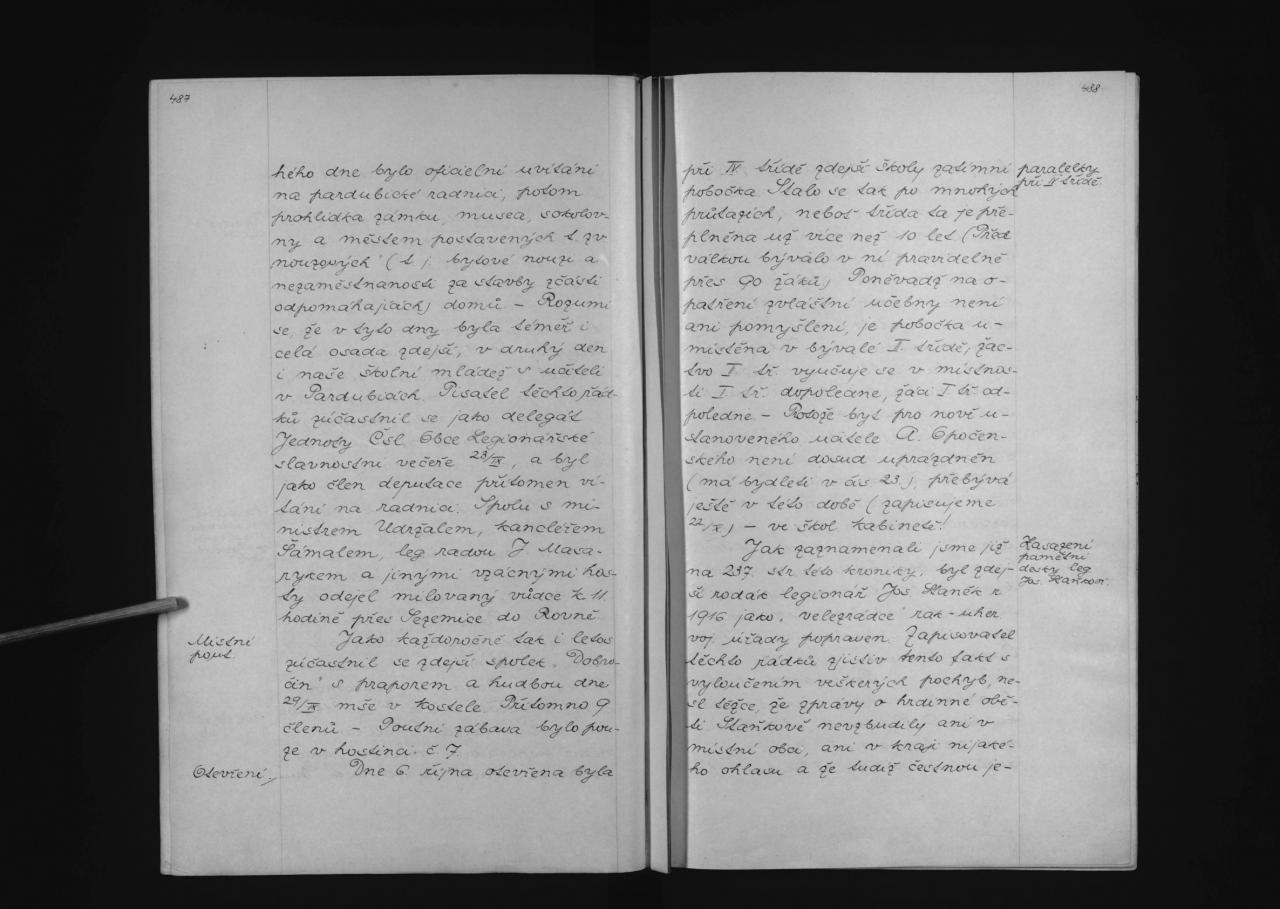 487
hého dne bylo oficielní uvítání
na pardubické radnici, potom
prohlídka zámku, musea, sokolov-
ny a městem postavených t. zv
nouzových (t. j. bytové nouzi a
nezaměstnanosti za stavby zčásti
odpomáhajících) domů – Rozumí
se, že v tyto dny byla téměř i
celá osada zdejší, v druhý den
i naše školní mládež s učiteli
v Pardubicích. Pisatel těchto řád-
ků zúčastnil se jako delegát
Jednoty Čsl. Obce Legionářské
slavnostní večeře 23/IX, a byl
jako člen deputace přítomen ví-
tání na radnici. Spolu s mi-
nistrem Udržalem, kancléřem
Šámalem, leg. radou J. Masa-
rykem a jinými vzácnými hos-
ty odejel milovaný vůdce k 11.
hodině přes Sezemice do Rovně.
Místní
pouť.
Jako každoročně tak i letos
zúčastnil se zdejší spolek „Dobro-
čin" s praporem a hudbou dne
29/IX mše v kostele. Přítomno 9
členů – Poutní zábava bylo pou-
ze v hostinci č. 7.
Otevření
Dne 6. října otevřena byla
488
při IV. třídě zdejší školy zatímní
paralelky
při IV třídě.
pobočka. Stalo se tak po mnohých
průtazích, neboť třída ta je pře-
plněna už více než 10 let (Před
válkou bývalo v ní pravidelně
přes 90 žáků) Poněvadž na o-
patření zvláštní učebny není
ani pomyšlení, je pobočka u-
místěna v bývalé I. třídě, žac-
tvo I. tř. vyučuje se v místnos-
ti I. tř. dopoledne, žáci I tř. od-
poledne – Protože byt pro nově u-
stanoveného učitele A. Opočen-
ského není dosud uprázdněn
(má bydleti v čís. 23.), přebývá
ještě v této době (zapisujeme
22/X) – ve škol. kabinetě!
Jak zaznamenali jsme již
Zasazení
pamětní
desky leg
Jos. Staňkovi.
na 237. str. této kroniky, byl zdej-
ší rodák legionář Jos. Staněk r.
1916 jako „velezrádce" rak.-uher
voj. úřady popraven. Zapisovatel
těchto řádků zjistiv tento fakt s
vyloučením veškerých pochyb, ne-
sl těžce, že zprávy o hrdinné obě-
ti Staňkově nevzbudily ani v
místní obci, ani v kraji nijaké-
ho ohlasu a že tudíž čestnou je-